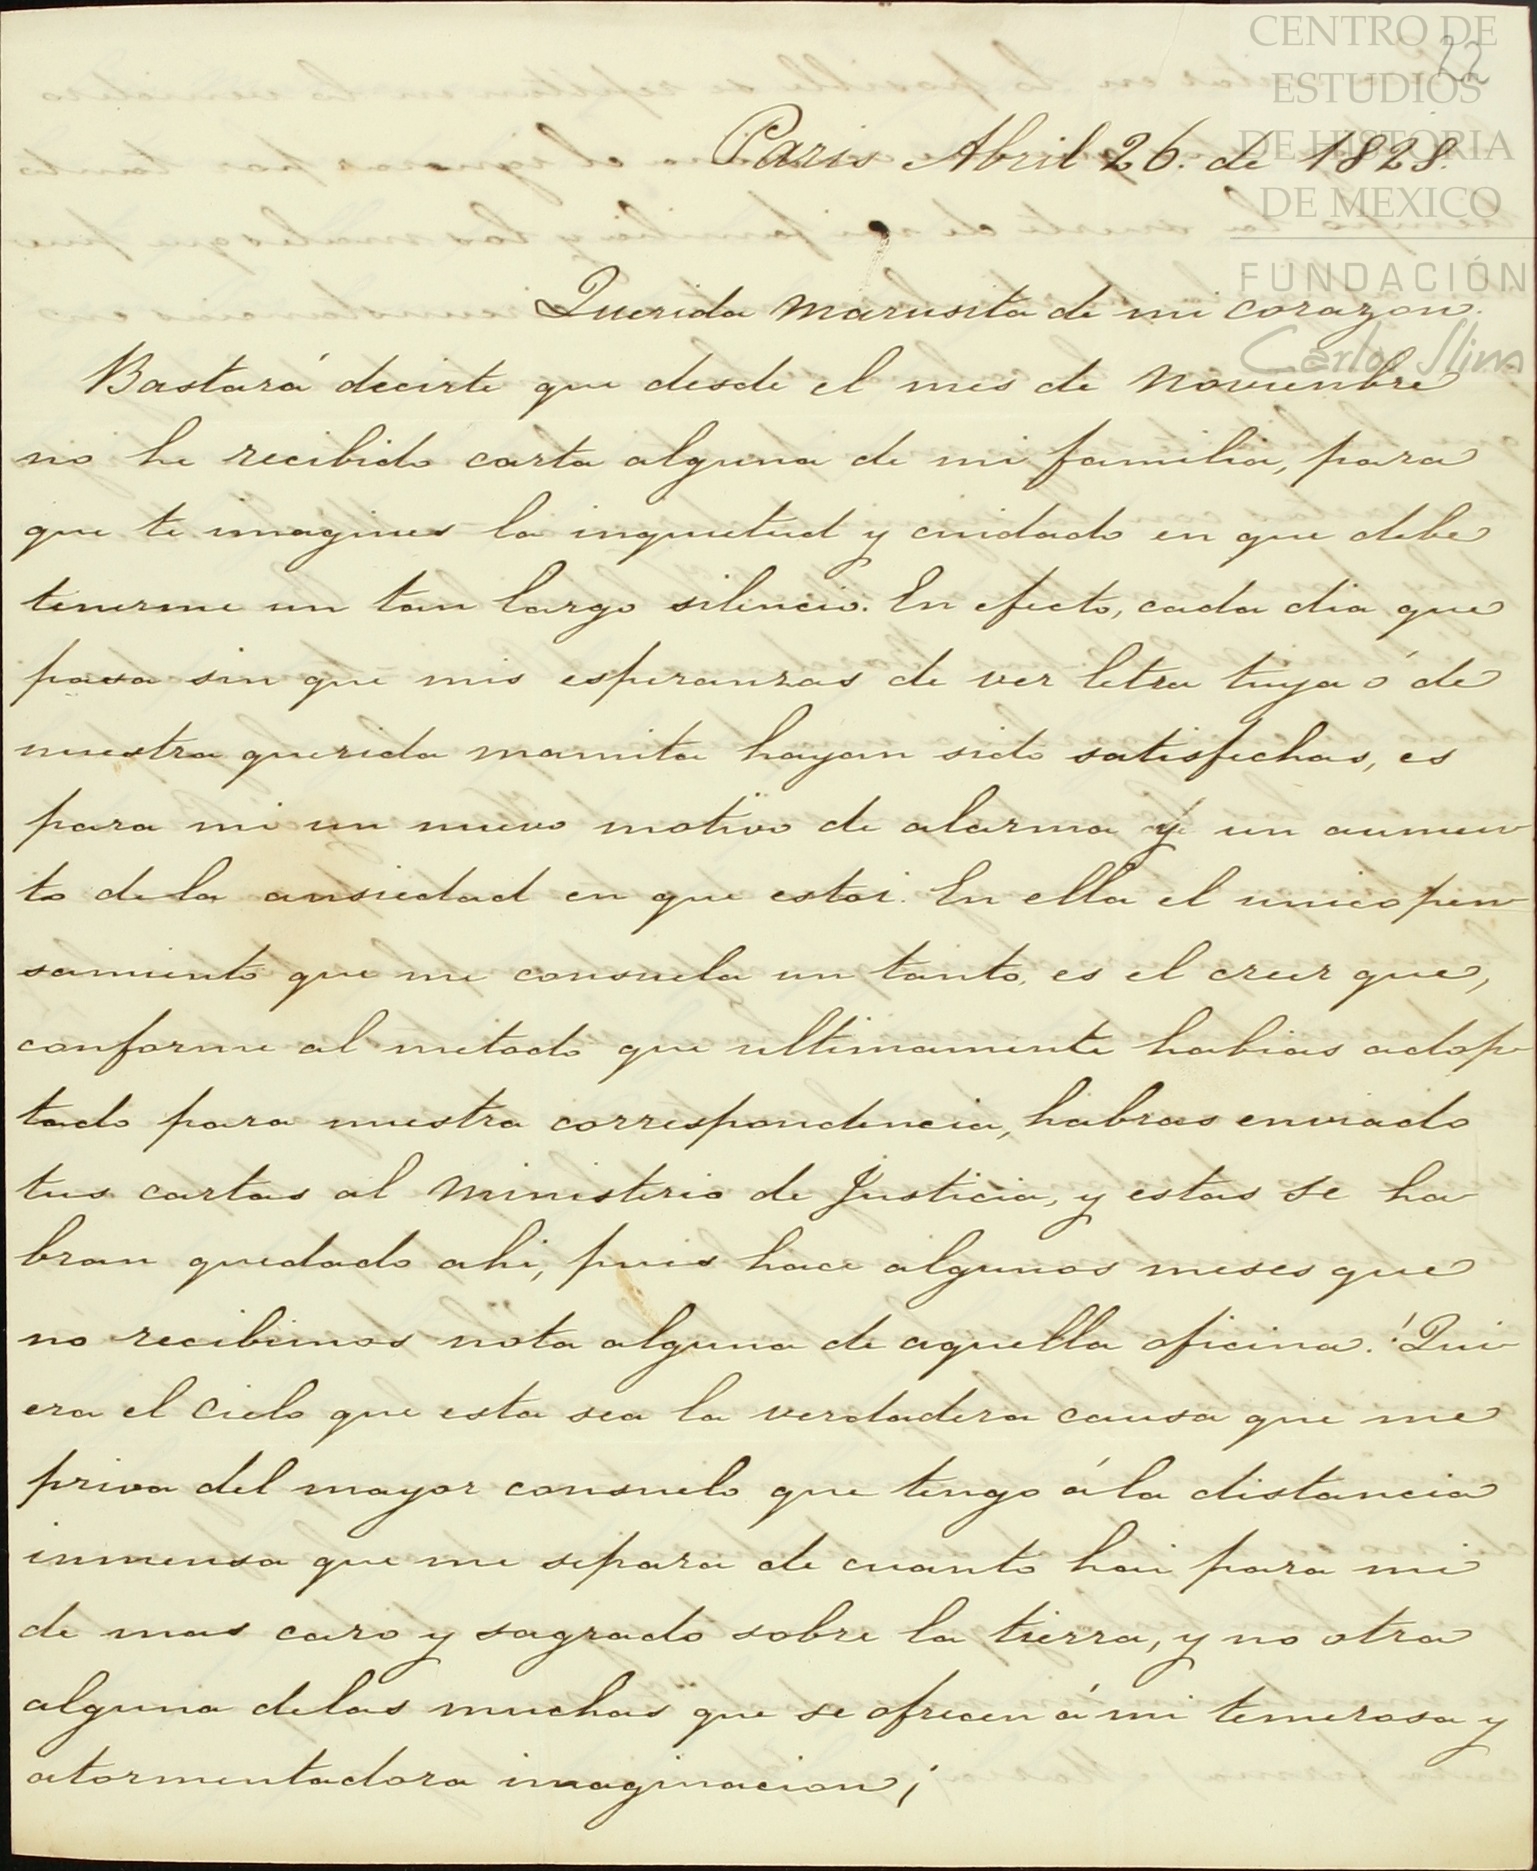 CENTRO DE
ESTUDIOS
DE HISTORIA
DE MEXICO
FUNDACIÓN
Carlos Slim
22
Paris Abril 26. de 1828.
Querida Marusita de mi corazon.
Bastará decirte que desde el mes de Noviembre
no he recibido carta alguna de mi familia, para
que te imagines la inquietud y cuidado en que debe
tenerme un tan largo silencio. En efecto, cada dia que
pasa sin que mis esperanzas de ver letra tuya ó de
nuestra querida mamita hayan sido satisfechas, es
para mi un nuevo motivo de alarma y un aumen
to de la ansiedad en que estoi. En ella el unico pen
samiento que me consuela un tanto, es el creer que,
conforme al metodo que ultimamente habias adop
tado para nuestra correspondencia, habras enviado
tus cartas al Ministerio de Justicia, y estas se ha
bran quedado ahi, pues hace algunos meses que
no recibimos nota alguna de aquella oficina. ! Qui
era el Cielo que esta sea la verdadera causa que me
priva del mayor consuelo que tengo á la distancia
inmensa que me separa de cuanto hai para mi
de mas caro y sagrado sobre la tierra, y no otra
alguna de las muchas que se ofrecen á mi temerosa y
atormentadora imaginacion ¡